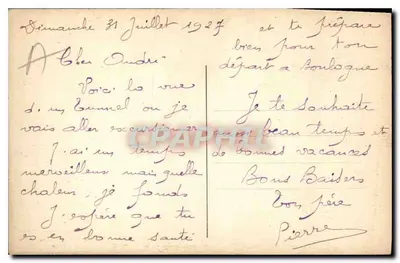 Dimanche 31 Juillet 1927
Cher André
Voici la vue
d'un tunnel ou je
vais aller excursionner
J'ai un temps
merveilleux mais quelle
chaleur je fonds
J'espère que tu
es en bonne santé
et te prépare
bien pour ton
départ a Boulogne
Je te souhaite
aussi beau temps et
de bonnes vacances
Bons Baisers
Ton père
Pierre
CPAPHIL.COM